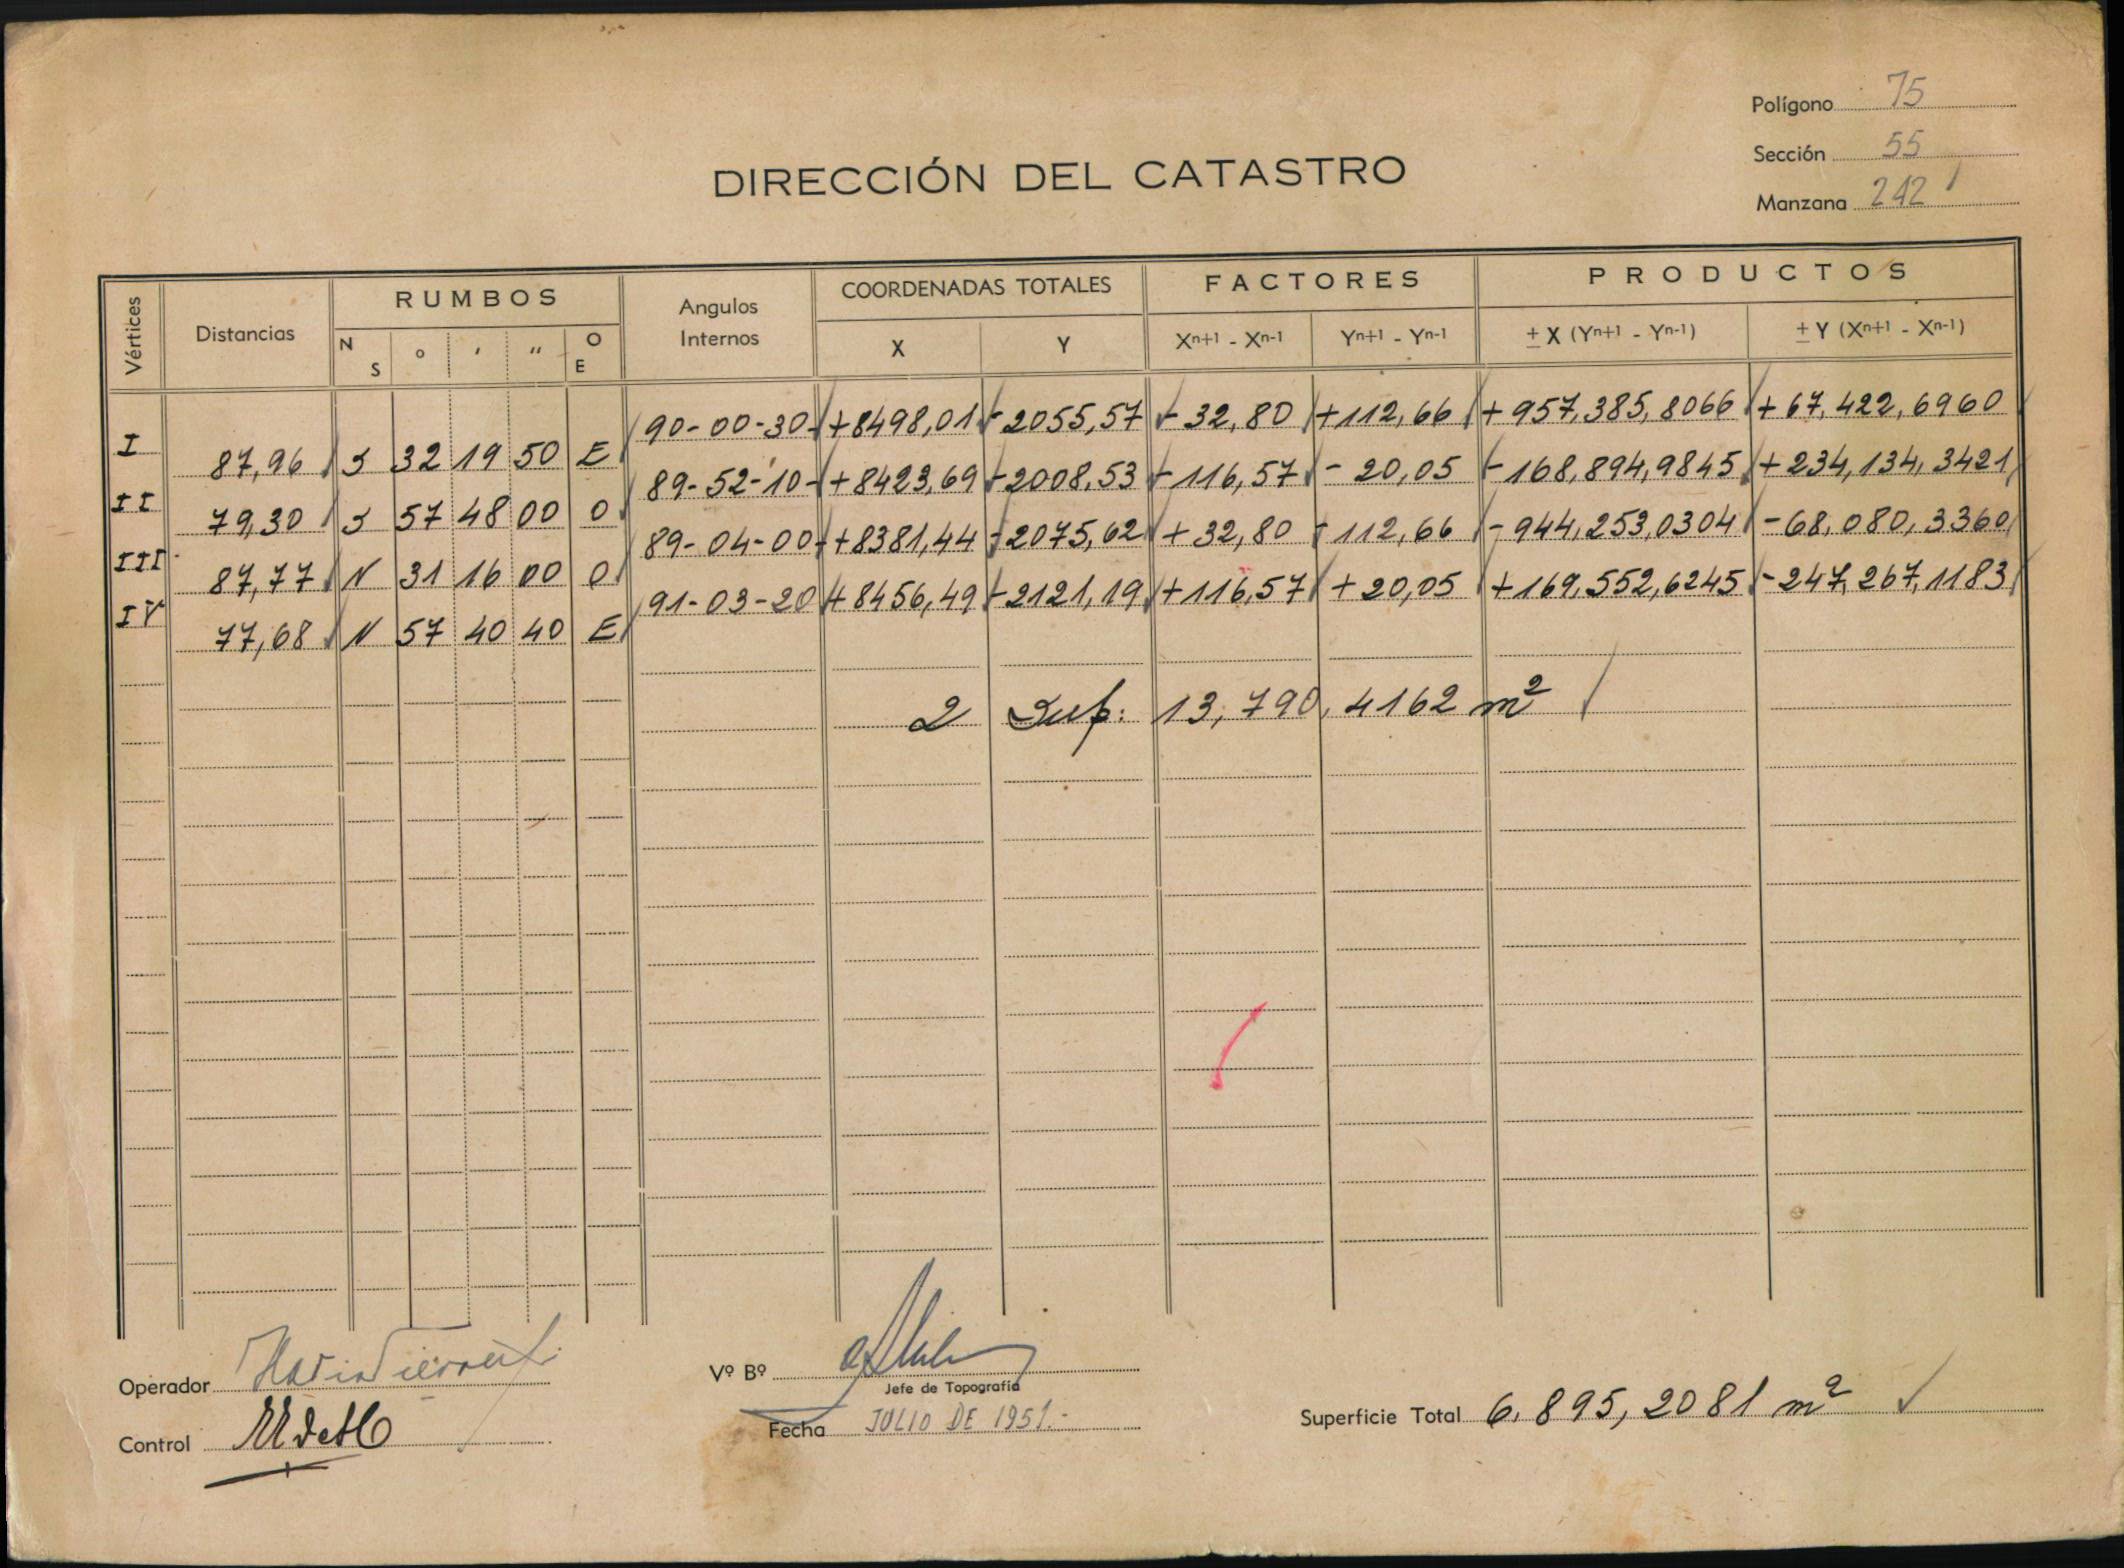 Polígono 75
Sección 55
Manzana 242
DIRECCIÓN DEL CATASTRO
Vértices Distancias RUMBOS Angulos Internos COORDENADAS TOTALES FACTORES PRODUCTOS
N S ° ' " O E X Y Xn+1 - Xn-1 Yn+1 - Yn-1 ± X (Yn+1 - Yn-1) ± Y (Xn+1 - Xn-1)
90-00-30 +8498,01 -2055,57 -32,80 +112,66 +957,385,8066 +67,422,6960
I 87,96 S 32 19 50 E
89-52-10 +8423,69 -2008,53 -116,57 -20,05 -168,894,9845 +234,134,3421
II 79,30 S 57 48 00 O
89-04-00 +8381,44 -2075,62 +32,80 -112,66 -944,253,0304 -68,080,3360
III 87,77 N 31 16 00 O
91-03-20 +8456,49 -2121,19 +116,57 +20,05 +169,552,6245 -247,267,1183
IV 77,68 N 57 40 40 E
2 Sup: 13,790,4162 m²
Operador
Vº Bº
Jefe de Topografía
Control
Fecha JULIO DE 1951.-
Superficie Total 6.895,2081 m²